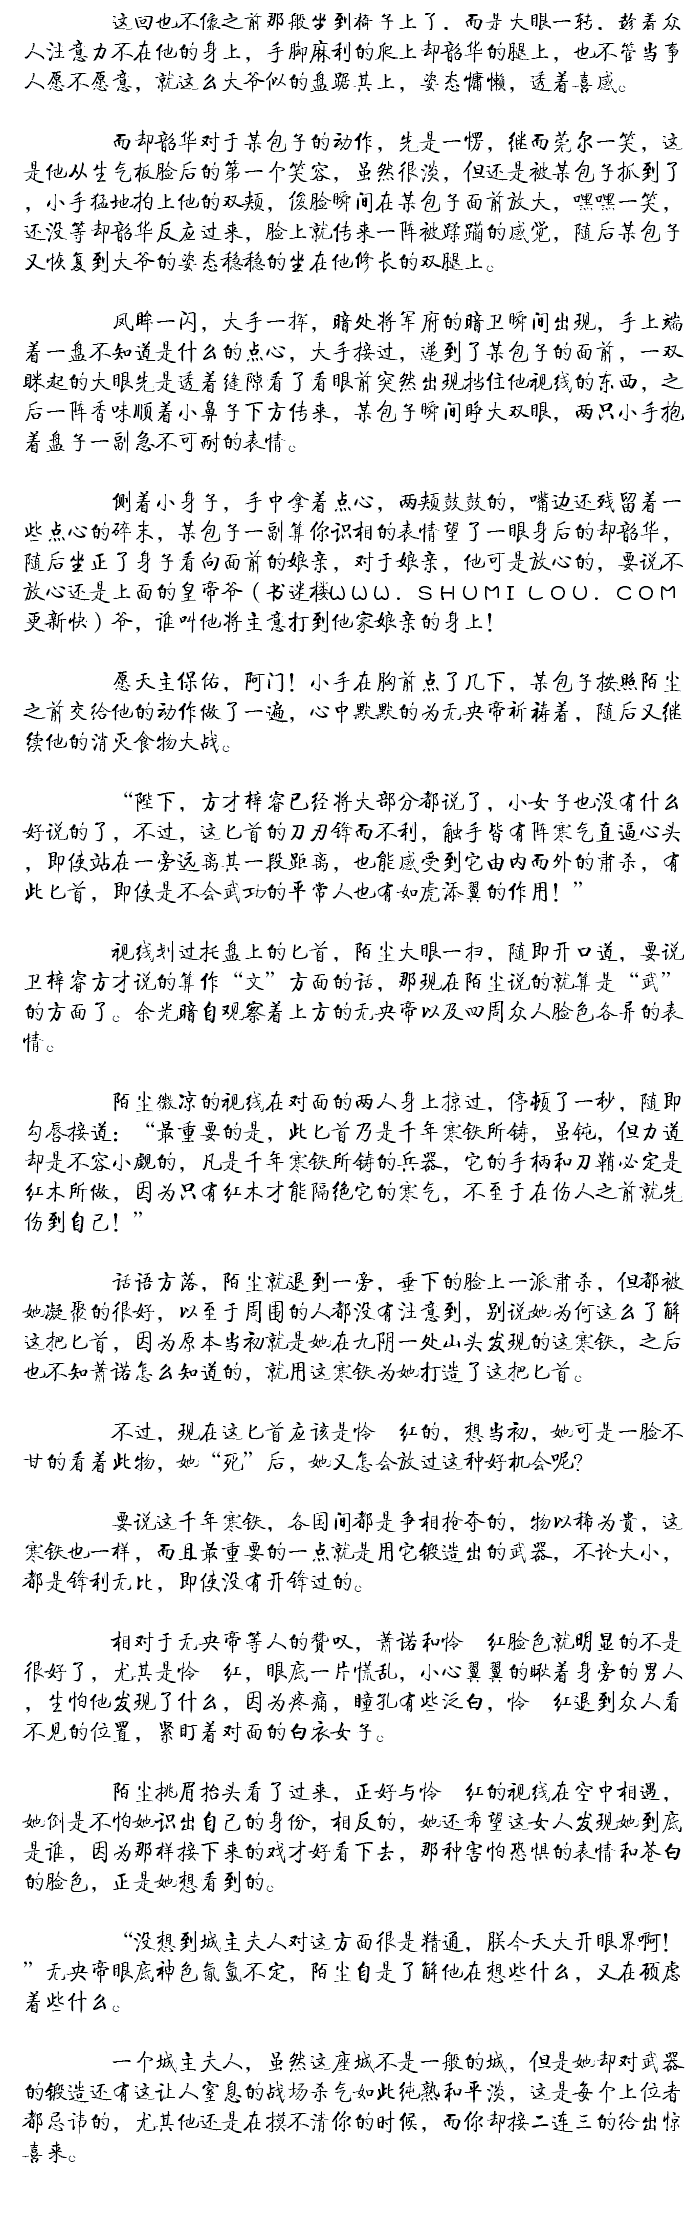 这回也不像之前那般坐到椅子上了，而是大眼一转，趁着众
人注意力不在他的身上，手脚麻利的爬上却韶华的腿上，也不管当事
人愿不愿意，就这么大爷似的盘踞其上，姿态慵懒，透着喜感。
而却韶华对于某包子的动作，先是一愣，继而莞尔一笑，这
是他从生气板脸后的第一个笑容，虽然很淡，但还是被某包子抓到了
，小手猛地拍上他的双颊，俊脸瞬间在某包子面前放大，嘿嘿一笑，
还没等却韶华反应过来，脸上就传来一阵被蹂躏的感觉，随后某包子
又恢复到大爷的姿态稳稳的坐在他修长的双腿上。
凤眸一闪，大手一挥，暗处将军府的暗卫瞬间出现，手上端
着一盘不知道是什么的点心，大手接过，递到了某包子的面前，一双
眯起的大眼先是透着缝隙看了看眼前突然出现挡住他视线的东西，之
后一阵香味顺着小鼻子下方传来，某包子瞬间睁大双眼，两只小手抱
着盘子一副急不可耐的表情。
侧着小身子，手中拿着点心，两颊鼓鼓的，嘴边还残留着一
些点心的碎末，某包子一副算你识相的表情望了一眼身后的却韶华，
随后坐正了身子看向面前的娘亲，对于娘亲，他可是放心的，要说不
放心还是上面的皇帝爷（书迷楼ＷＷＷ．ＳＨＵＭＩＬＯＵ．ＣＯＭ
更新快）爷，谁叫他将主意打到他家娘亲的身上！
愿天主保佑，阿门！小手在胸前点了几下，某包子按照陌尘
之前交给他的动作做了一遍，心中默默的为无央帝祈祷着，随后又继
续他的消灭食物大战。
“陛下，方才梓睿已经将大部分都说了，小女子也没有什么
好说的了，不过，这匕首的刀刃锋而不利，触手皆有阵寒气直逼心头
，即使站在一旁远离其一段距离，也能感受到它由内而外的肃杀，有
此匕首，即使是不会武功的平常人也有如虎添翼的作用！”
视线划过托盘上的匕首，陌尘大眼一扫，随即开口道，要说
卫梓睿方才说的算作“文”方面的话，那现在陌尘说的就算是“武”
的方面了。余光暗自观察着上方的无央帝以及四周众人脸色各异的表
情。
陌尘微凉的视线在对面的两人身上掠过，停顿了一秒，随即
勾唇接道：“最重要的是，此匕首乃是千年寒铁所铸，虽钝，但力道
却是不容小觑的，凡是千年寒铁所铸的兵器，它的手柄和刀鞘必定是
红木所做，因为只有红木才能隔绝它的寒气，不至于在伤人之前就先
伤到自己！”
话语方落，陌尘就退到一旁，垂下的脸上一派肃杀，但都被
她凝聚的很好，以至于周围的人都没有注意到，别说她为何这么了解
这把匕首，因为原本当初就是她在九阴一处山头发现的这寒铁，之后
也不知萧诺怎么知道的，就用这寒铁为她打造了这把匕首。
不过，现在这匕首应该是怜　红的，想当初，她可是一脸不
甘的看着此物，她“死”后，她又怎会放过这种好机会呢？
要说这千年寒铁，各国间都是争相抢夺的，物以稀为贵，这
寒铁也一样，而且最重要的一点就是用它锻造出的武器，不论大小，
都是锋利无比，即使没有开锋过的。
相对于无央帝等人的赞叹，萧诺和怜　红脸色就明显的不是
很好了，尤其是怜　红，眼底一片慌乱，小心翼翼的瞅着身旁的男人
，生怕他发现了什么，因为疼痛，瞳孔有些泛白，怜　红退到众人看
不见的位置，紧盯着对面的白衣女子。
陌尘挑眉抬头看了过来，正好与怜　红的视线在空中相遇，
她倒是不怕她识出自己的身份，相反的，她还希望这女人发现她到底
是谁，因为那样接下来的戏才好看下去，那种害怕恐惧的表情和苍白
的脸色，正是她想看到的。
“没想到城主夫人对这方面很是精通，朕今天大开眼界啊！
”无央帝眼底神色氤氲不定，陌尘自是了解他在想些什么，又在顾虑
着些什么。
一个城主夫人，虽然这座城不是一般的城，但是她却对武器
的锻造还有这让人窒息的战场杀气如此纯熟和平淡，这是每个上位者
都忌讳的，尤其他还是在摸不清你的时候，而你却接二连三的给出惊
喜来。